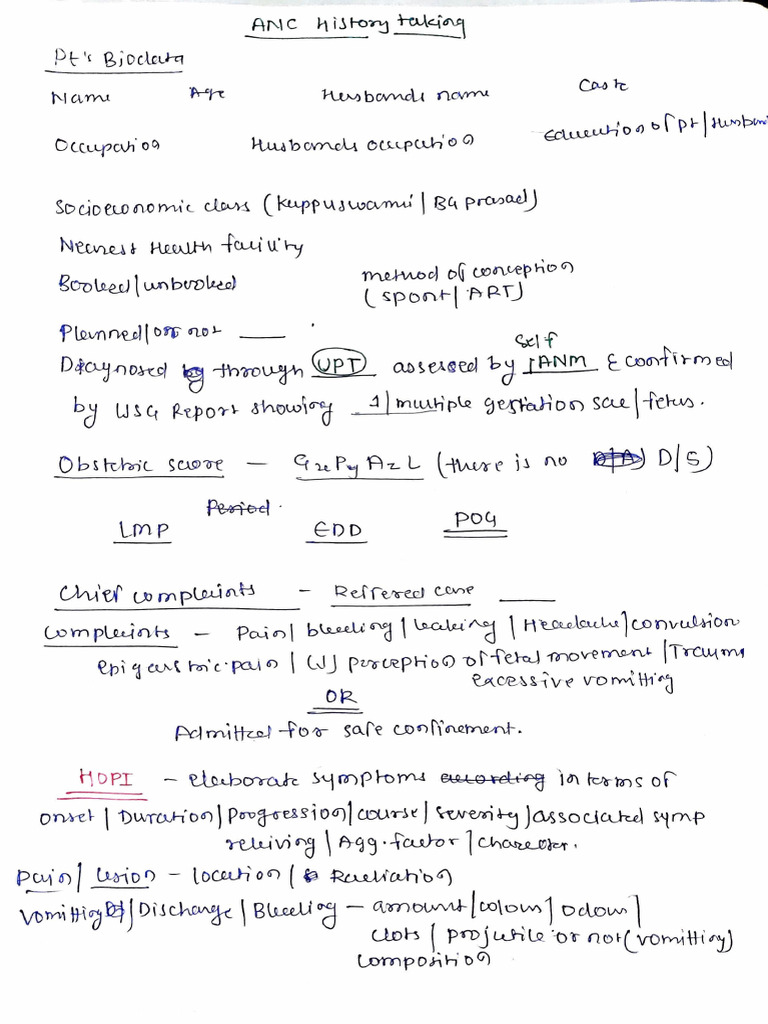 ANC History taking
Pt's Biodata
Name Age Husbands name Caste
Occupation Husbands occupation Education of pt/Husban
Socioeconomic class (Kuppuswami | BG prasad)
Nearest Health facility
Booked/unbooked method of conception
(spont/ ART)
Planned/or not ___
Self
Diagnosed through UPT assessed by /ANM & confirmed
by USG Report showing 1/multiple gestation sac/fetus.
Obstetric score - GxPyAzL (there is no D/S)
Period.
LMP EDD POG
Chief complaints - Referred case ___
Complaints - Pain| bleeding / leaking / Headache/convulsion
epigastric pain / (↓) perception of fetal movement /Trauma
excessive vomitting
OR
Admitted for safe confinement.
HOPI - elaborate symptoms according in terms of
onset / Duration/ Progression/course/severity/associated symp
reliving / Agg. factor / character.
Pain/ lesion - location / Radiation
Vomitting /Discharge / Bleeding - amount/colour/ odour/
clots / projutile or not (vomitting)
composition